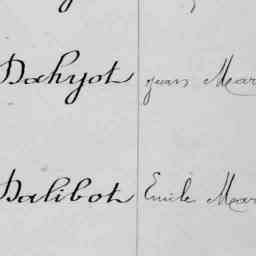 Dahyot Jean Mar
Dalibot Emile Mar